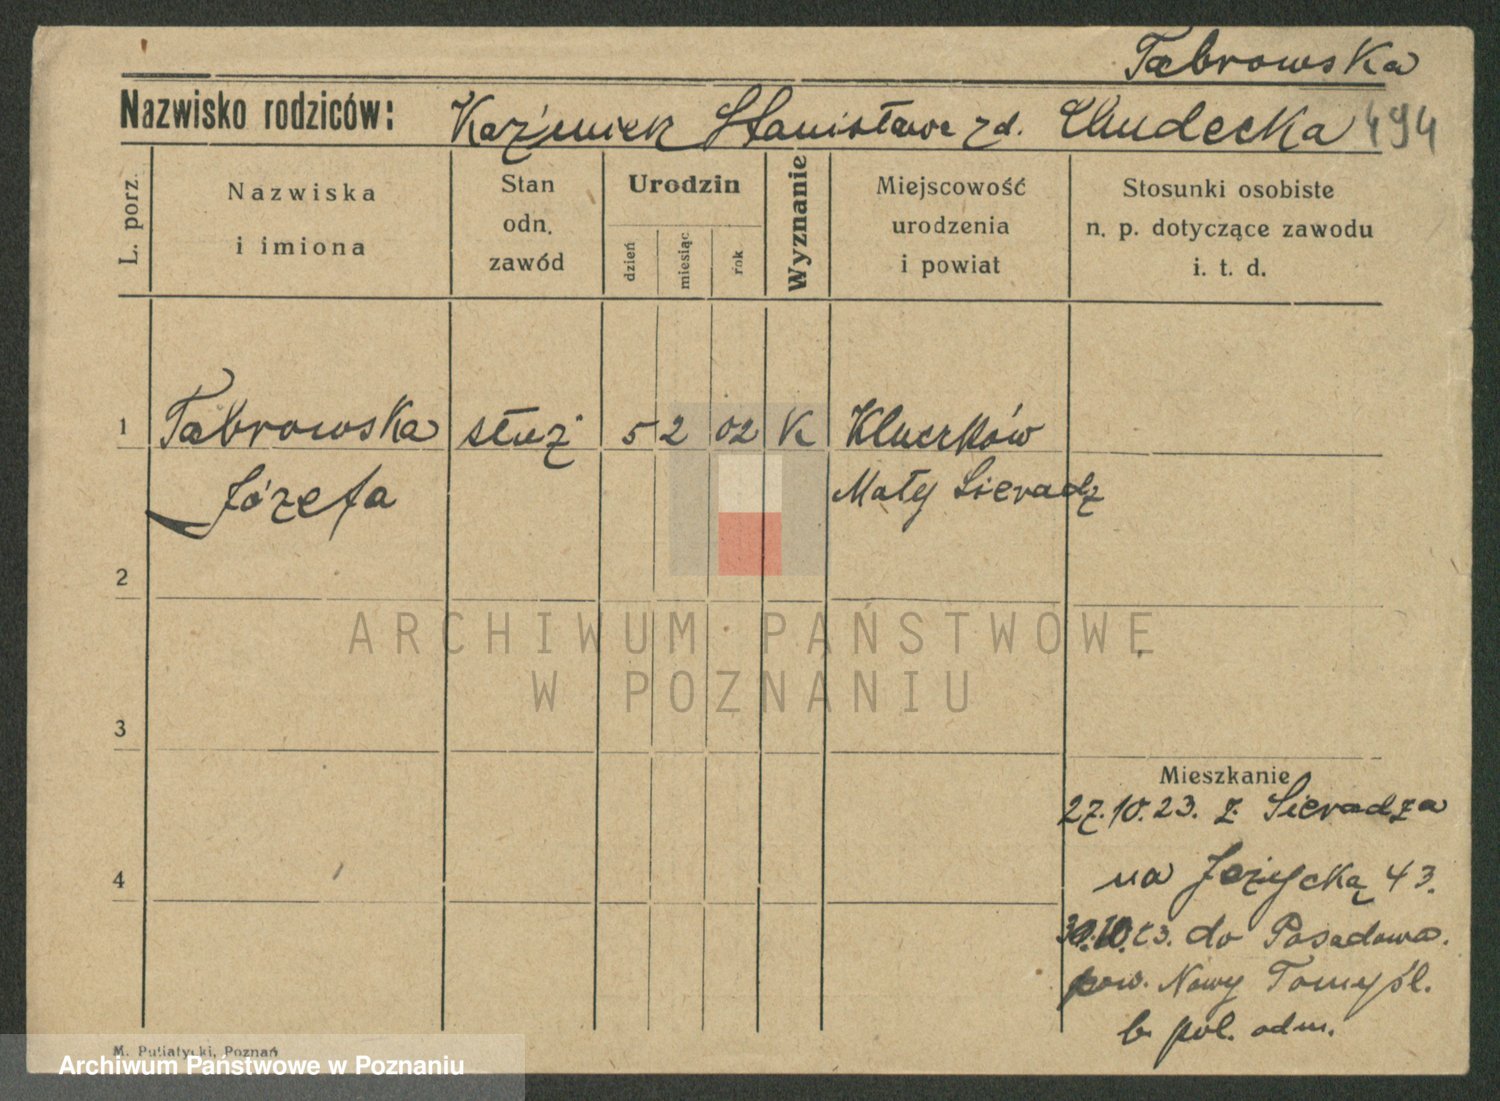 Tabrowska
Nazwisko rodziców: Kaźmierz Stanisława zd. Chudecka 494
L. porz.
Nazwiska
i imiona
Stan
odn.
zawód
Urodzin
dzień
miesiąc
rok
Wyznanie
Miejscowość
urodzenia
i powiat
Stosunki osobiste
n. p. dotyczące zawodu
i. t. d.
1 Tabrowska służ 5 2 02 K
Józefa Mały Sieradz
2
ARCHIWUM PAŃSTWOWE
W POZNANIU
3
Mieszkanie
27.10.23. z Sieradza
4
na Jeżycką 43.
30.10.23. do Posadowa.
pow. Nowy Tomyśl.
b. pol. odm.
M. Putiatycki, Poznań
Archiwum Państwowe w Poznaniu